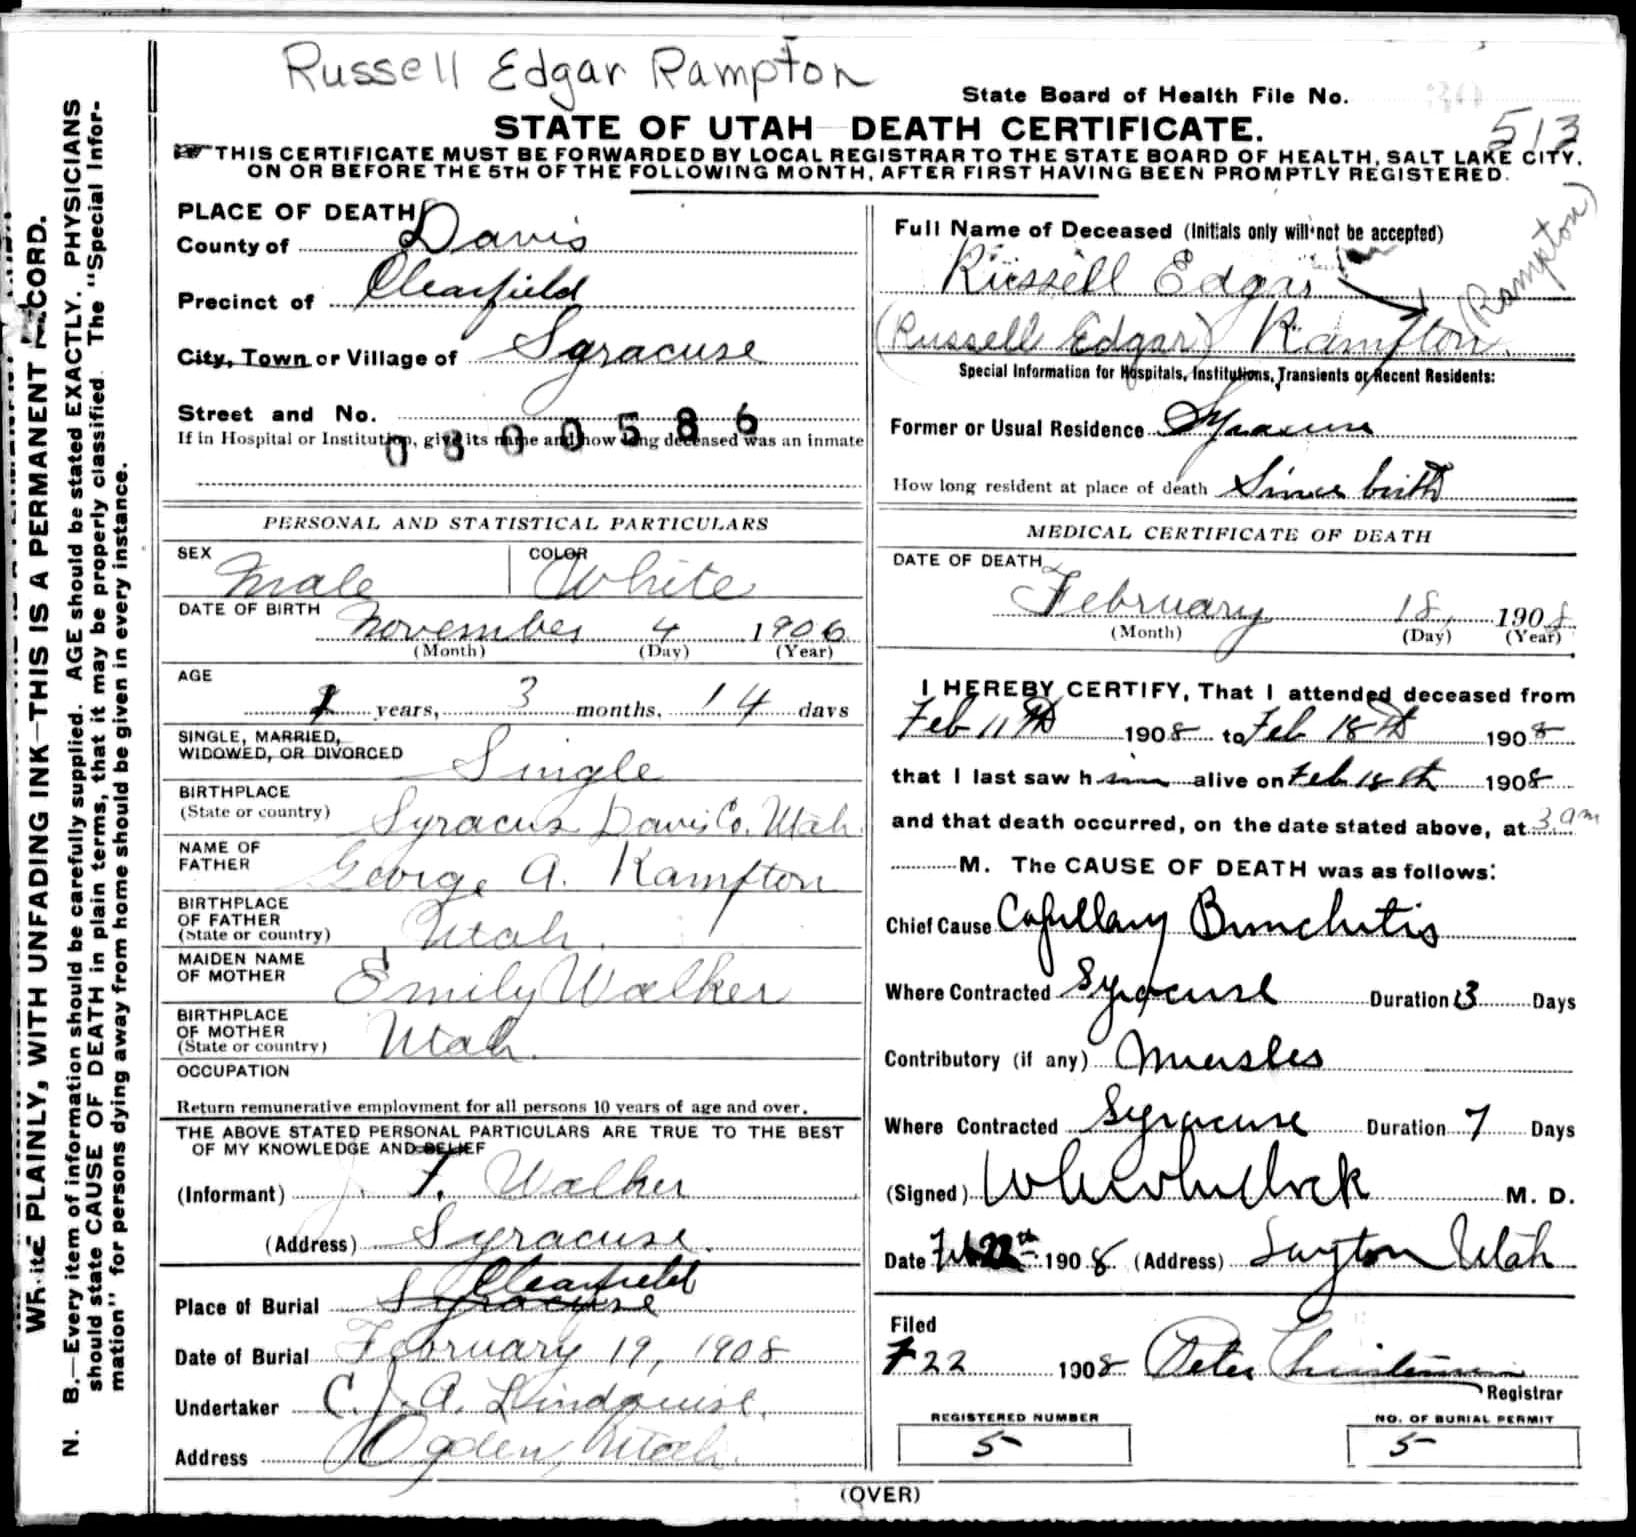 Russell Edgar Rampton
State Board of Health File No.
513
STATE OF UTAH DEATH CERTIFICATE.
THIS CERTIFICATE MUST BE FORWARDED BY LOCAL REGISTRAR TO THE STATE BOARD OF HEALTH, SALT LAKE CITY,
ON OR BEFORE THE 5TH OF THE FOLLOWING MONTH, AFTER FIRST HAVING BEEN PROMPTLY REGISTERED.
WRITE PLAINLY, WITH UNFADING INK—THIS IS A PERMANENT RECORD.
N. B.—Every item of information should be carefully supplied. AGE should be stated EXACTLY. PHYSICIANS
should state CAUSE OF DEATH in plain terms, that it may be properly classified. The "Special Infor-
mation" for persons dying away from home should be given in every instance.
PLACE OF DEATH
County of Davis
Precinct of Clearfield
City, Town or Village of Syracuse
Street and No.
If in Hospital or Institution, give its name and how long deceased was an inmate
0800586
PERSONAL AND STATISTICAL PARTICULARS
SEX Male COLOR White
DATE OF BIRTH November 4 1906
(Month) (Day) (Year)
AGE
1 years, 3 months, 14 days
SINGLE, MARRIED,
WIDOWED, OR DIVORCED Single
BIRTHPLACE
(State or country) Syracus Davis Co. Utah
NAME OF
FATHER George A. Rampton
BIRTHPLACE
OF FATHER
(State or country) Utah.
MAIDEN NAME
OF MOTHER Emily Walker
BIRTHPLACE
OF MOTHER
(State or country) Utah.
OCCUPATION
Return remunerative employment for all persons 10 years of age and over.
THE ABOVE STATED PERSONAL PARTICULARS ARE TRUE TO THE BEST
OF MY KNOWLEDGE AND BELIEF
(Informant) Walker
(Address) Syracuse.
Clearfield
Place of Burial Syracuse
Date of Burial February 19, 1908
Undertaker C. J. A. Lindquist.
Address Ogden, Utah.
Full Name of Deceased (Initials only will not be accepted)
Russell Edgar
(Russell Edgar) Rampton.
(Rampton)
Special Information for Hospitals, Institutions, Transients or Recent Residents:
Former or Usual Residence Syracuse
How long resident at place of death Since birth
MEDICAL CERTIFICATE OF DEATH
DATE OF DEATH
February 18, 1908
(Month) (Day) (Year)
I HEREBY CERTIFY, That I attended deceased from
Feb 11th 1908 to Feb 18th 1908
that I last saw him alive on Feb 18th 1908
and that death occurred, on the date stated above, at 3 am
M. The CAUSE OF DEATH was as follows:
Chief Cause Capillary Bronchitis
Where Contracted Syracuse Duration 3 Days
Contributory (if any) Measles
Where Contracted Syracuse Duration 7 Days
(Signed) M. D.
Date Feb 22th 1908 (Address) Layton Utah
Filed
22 1908 Peter Christensen
Registrar
REGISTERED NUMBER
5
NO. OF BURIAL PERMIT
5
(OVER)